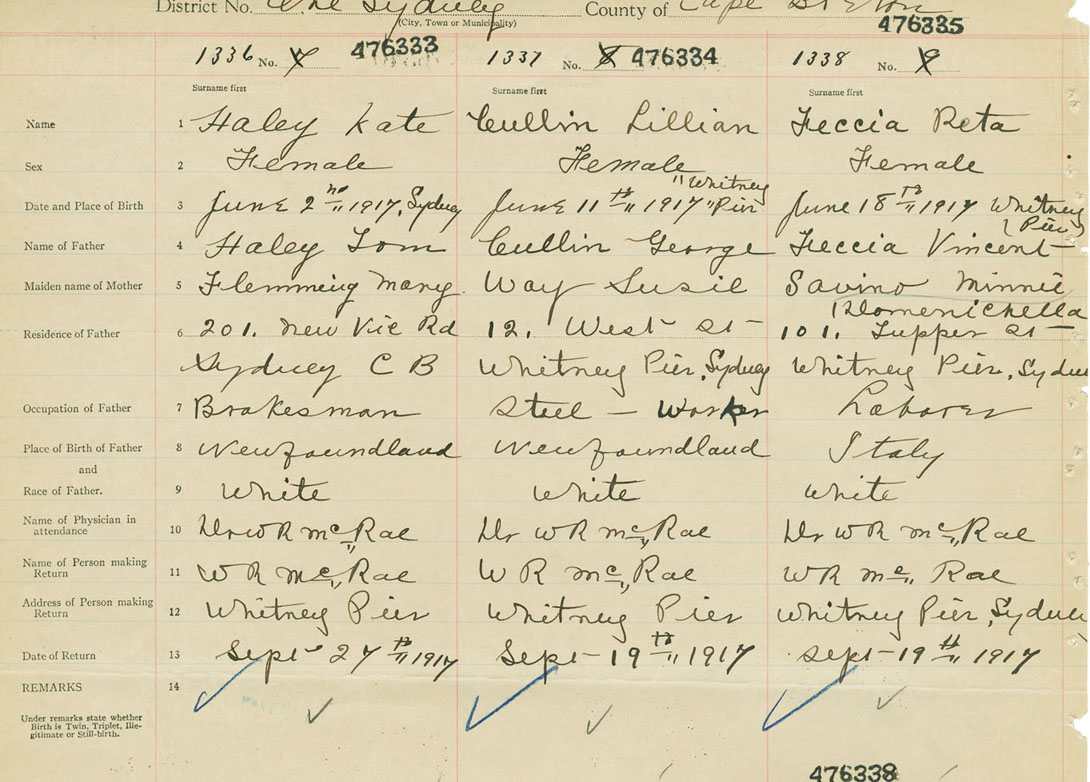 District No. One Sydney County of Cape Breton
(City, Town or Municipality)
476335
1336 No. 7 476333 1337 No. 8 476334 1338 No. 9
Surname first Surname first Surname first
Name 1 Haley Kate Cullin Lillian Feccia Reta
Sex 2 Female Female Female
Date and Place of Birth 3 June 2nd 1917, Sydney June 11th 1917 "Whitney Pier" June 18th 1917 Whitney Pier
Name of Father 4 Haley Tom Cullin George Feccia Vincent
Maiden name of Mother 5 Flemming Mary Way Susie Savino Minnie
(Domenichella
Residence of Father 6 201. New Vic Rd 12. West St 101. Tupper St
Sydney C B Whitney Pier, Sydney Whitney Pier, Sydney
Occupation of Father 7 Brakesman Steel - Worker Laborer
Place of Birth of Father 8 Newfoundland Newfoundland Italy
and
Race of Father. 9 White White White
Name of Physician in
attendance 10 Dr W R McRae Dr W R McRae Dr W R McRae
Name of Person making
Return 11 W R McRae W R McRae W R McRae
Address of Person making
Return 12 Whitney Pier Whitney Pier Whitney Pier, Sydney
Date of Return 13 Sept 27th 1917 Sept - 19th 1917 Sept - 19th 1917
REMARKS 14
Under remarks state whether
Birth is Twin, Triplet, Ille-
gitimate or Still-birth.
476338